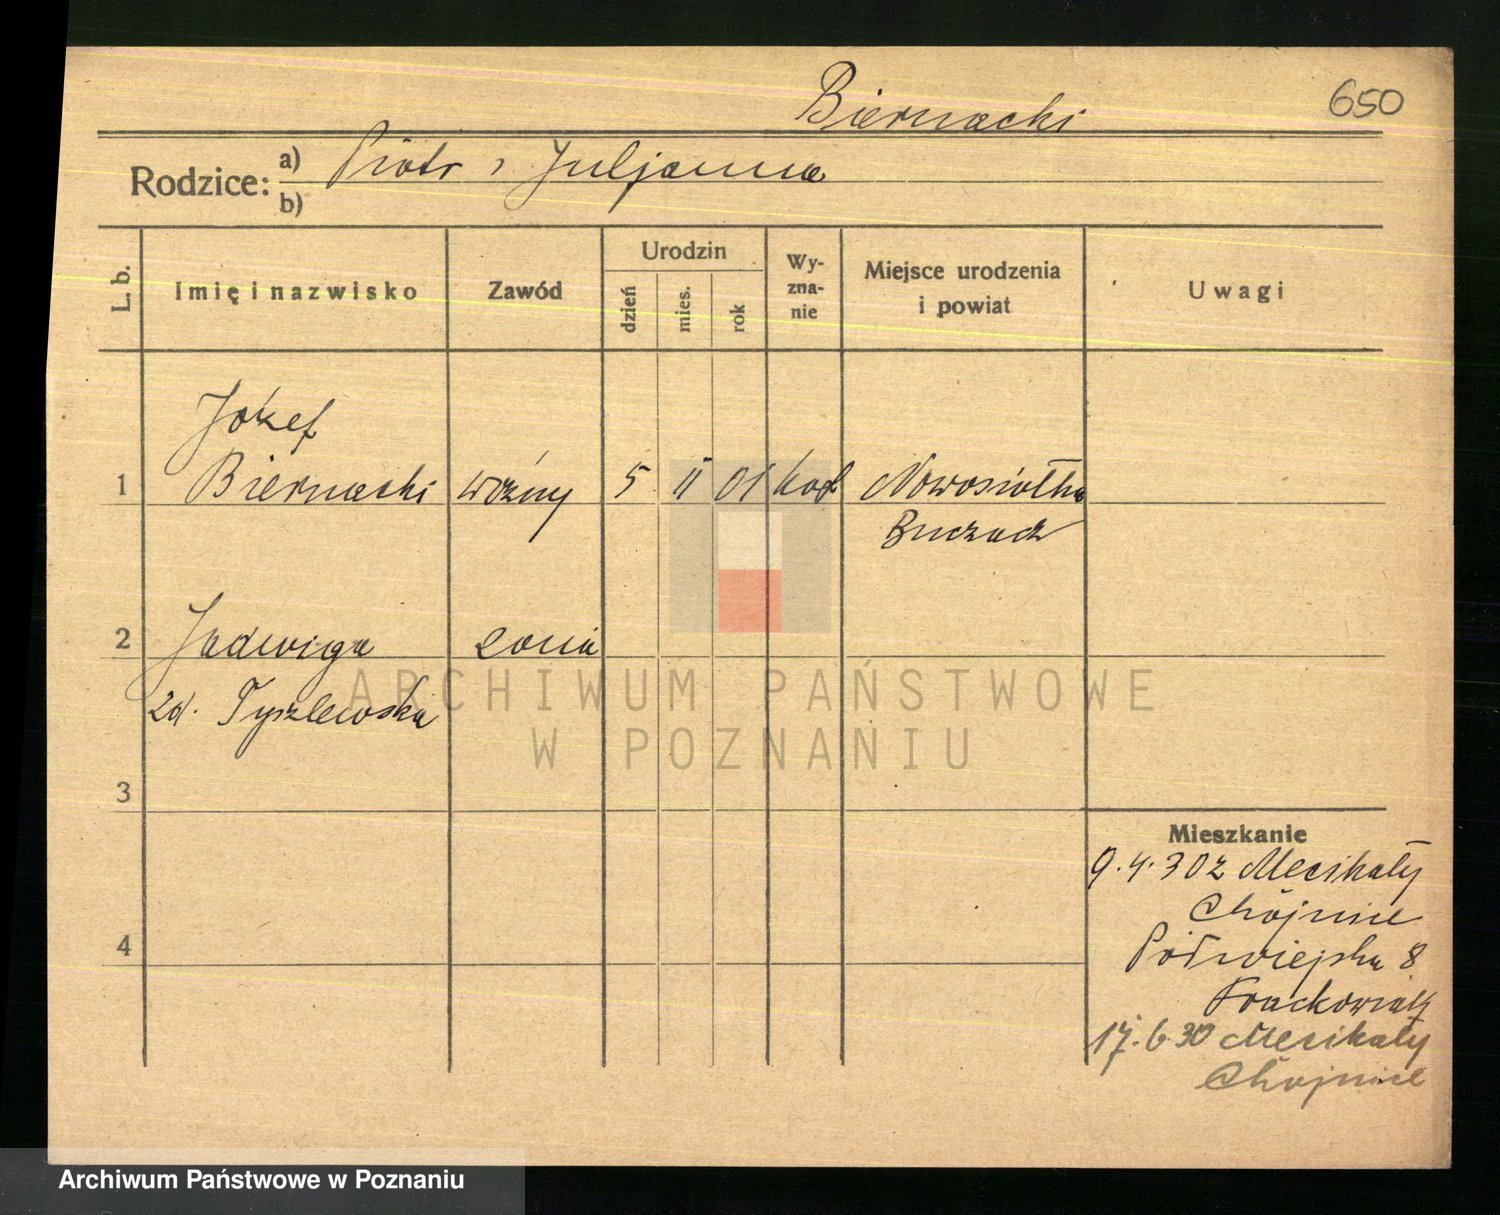 Biernacki
650
Rodzice: a) Piotr i Juljanna
b)
L. b.
Imię i nazwisko
Zawód
Urodzin
dzień
mies.
rok
Wy-
zna-
nie
Miejsce urodzenia
i powiat
Uwagi
Józef
1 Biernacki woźny 5 II 01 kat Nowosiołka
Buczacz
2 Jadwiga żona
zd. Tyszlewska
3
4
Mieszkanie
9.4.30 z Mecikały
Chojnice
Podwiejska 8
17.6.30 Mecikały
Chojnice
ARCHIWUM PAŃSTWOWE
W POZNANIU
Archiwum Państwowe w Poznaniu